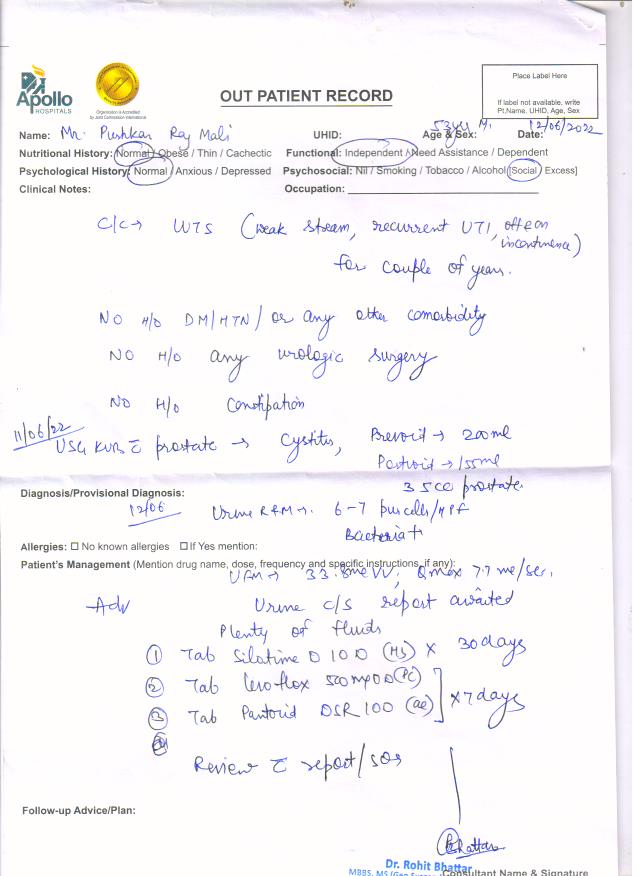 Apollo
HOSPITALS
Organization is Accredited
by Joint Commission International
OUT PATIENT RECORD
Place Label Here
If label not available, write
Pt,Name. UHID, Age, Sex
Name: Mr. Pushkar Raj Mali UHID: Age & Sex: 53yrs M. Date: 12/06/2022
Nutritional History: Normal / Obese / Thin / Cachectic Functional: Independent / Need Assistance / Dependent
Psychological History: Normal / Anxious / Depressed Psychosocial: Nil / Smoking / Tobacco / Alcohol [Social / Excess]
Clinical Notes: Occupation:
C/C→ (weak stream, recurrent UTI, incontinence)
for couple of years.
NO H/O DM/HTN/ or any other comorbidity
NO H/O any urologic surgery
NO H/O Constipation
11/06/22
USG KUB c̄ prostate → Cystitis, Prevoid → 200ml
Postvoid → 155ml
35CC prostate
Diagnosis/Provisional Diagnosis:
12/06 Urine R&M→ 6-7 pus cells/HPF
Bacteria +
Allergies: ☐ No known allergies ☐ If Yes mention:
Patient's Management (Mention drug name, dose, frequency and specific instructions, if any):
UFM → 33.8ml VV, Qmax 7.7 ml/sec.
Adv Urine C/S report awaited
Plenty of fluids
① Tab D 10D (HS) x 30 days
② Tab 500mg OD (PC)
③ Tab DSR 100 (ac) x 7 days
Review c̄ report/SOS
Follow-up Advice/Plan:
Bhattar
Dr. Rohit Bhattar
MBBS, MS (Gen Consultant Name & Signature